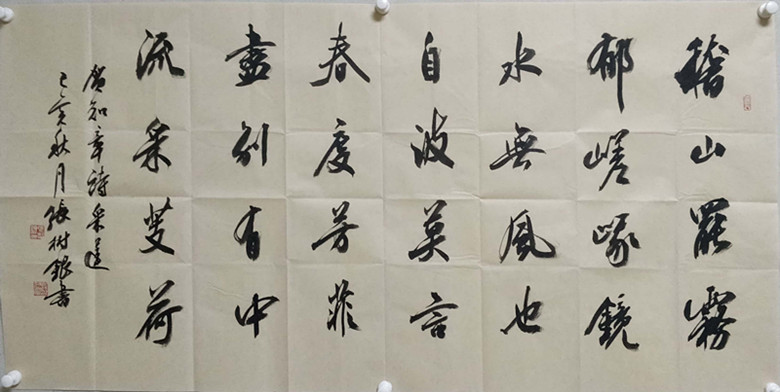 稽山罷霧
郁嵯峨鏡
水無風也
自波莫言
春度芳菲
盡別有中
流采芰荷
賀知章詩采蓮
己亥秋月張樹銀書